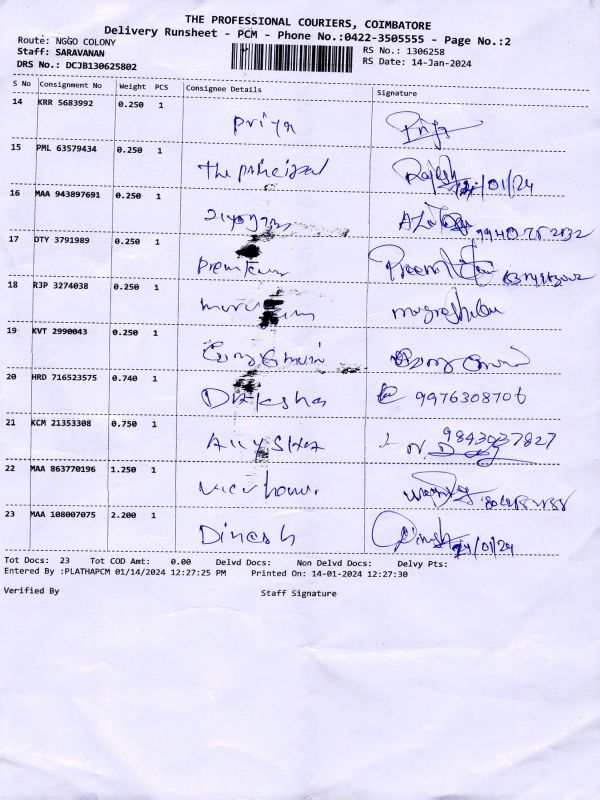 THE PROFESSIONAL COURIERS, COIMBATORE
Delivery Runsheet - PCM - Phone No.:0422-3505555 - Page No.:2
Route: NGGO COLONY
RS No.: 1306258
Staff: SARAVANAN
RS Date: 14-Jan-2024
DRS No.: DCJB130625802
S No Consignment No Weight PCS Consignee Details Signature
14 KRR 5683992 0.250 1 Priya Priya
15 PML 63579434 0.250 1 the principal Rajesh 14/01/24
16 MAA 943897691 0.250 1
17 DTY 3791989 0.250 1 Premkum
18 RJP 3274038 0.250 1
19 KVT 2990043 0.250 1
20 HRD 716523575 0.740 1 Dakasha 9976308706
21 KCM 21353308 0.750 1 9843037827
22 MAA 863770196 1.250 1
23 MAA 108007075 2.200 1 Dinesh Dinesh 14/01/24
Tot Docs: 23 Tot COD Amt: 0.00 Delvd Docs: Non Delvd Docs: Delvy Pts:
Entered By :PLATHAPCM 01/14/2024 12:27:25 PM Printed On: 14-01-2024 12:27:30
Verified By Staff Signature